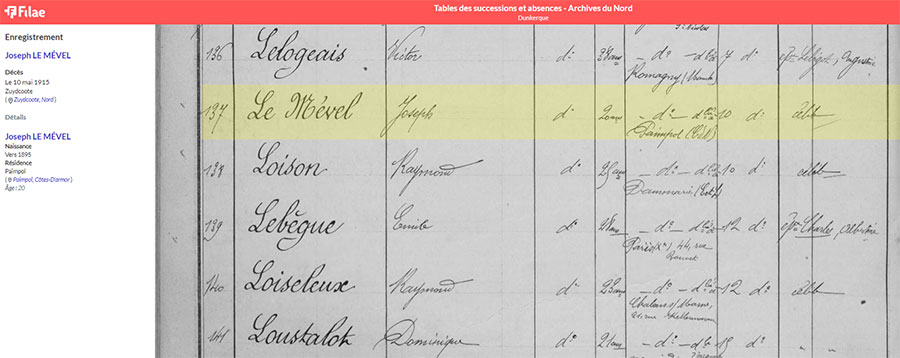 Filae
Tables des successions et absences - Archives du Nord
Dunkerque
Enregistrement
Joseph LE MÉVEL
Décès
Le 10 mai 1915
Zuydcoote
( Zuydcoote, Nord )
Détails
Joseph LE MÉVEL
Naissance
Vers 1895
Résidence
Paimpol
( Paimpol, Côtes-D'armor )
Âge : 20
136 Lelogeais Victor do do 7 do
Romagny
137 Le Mével Joseph do 20 ans do 10 do célib
Paimpol
138 Loison Raymond do 25 ans do 10 do célib
139 Lebègue Emile do do 12 do Charles
Paris
140 Loiseleux Raymond do 23 ans do 12 do célib
Chalons s/ Marne,
141 Loustalot Dominique do 21 ans do do